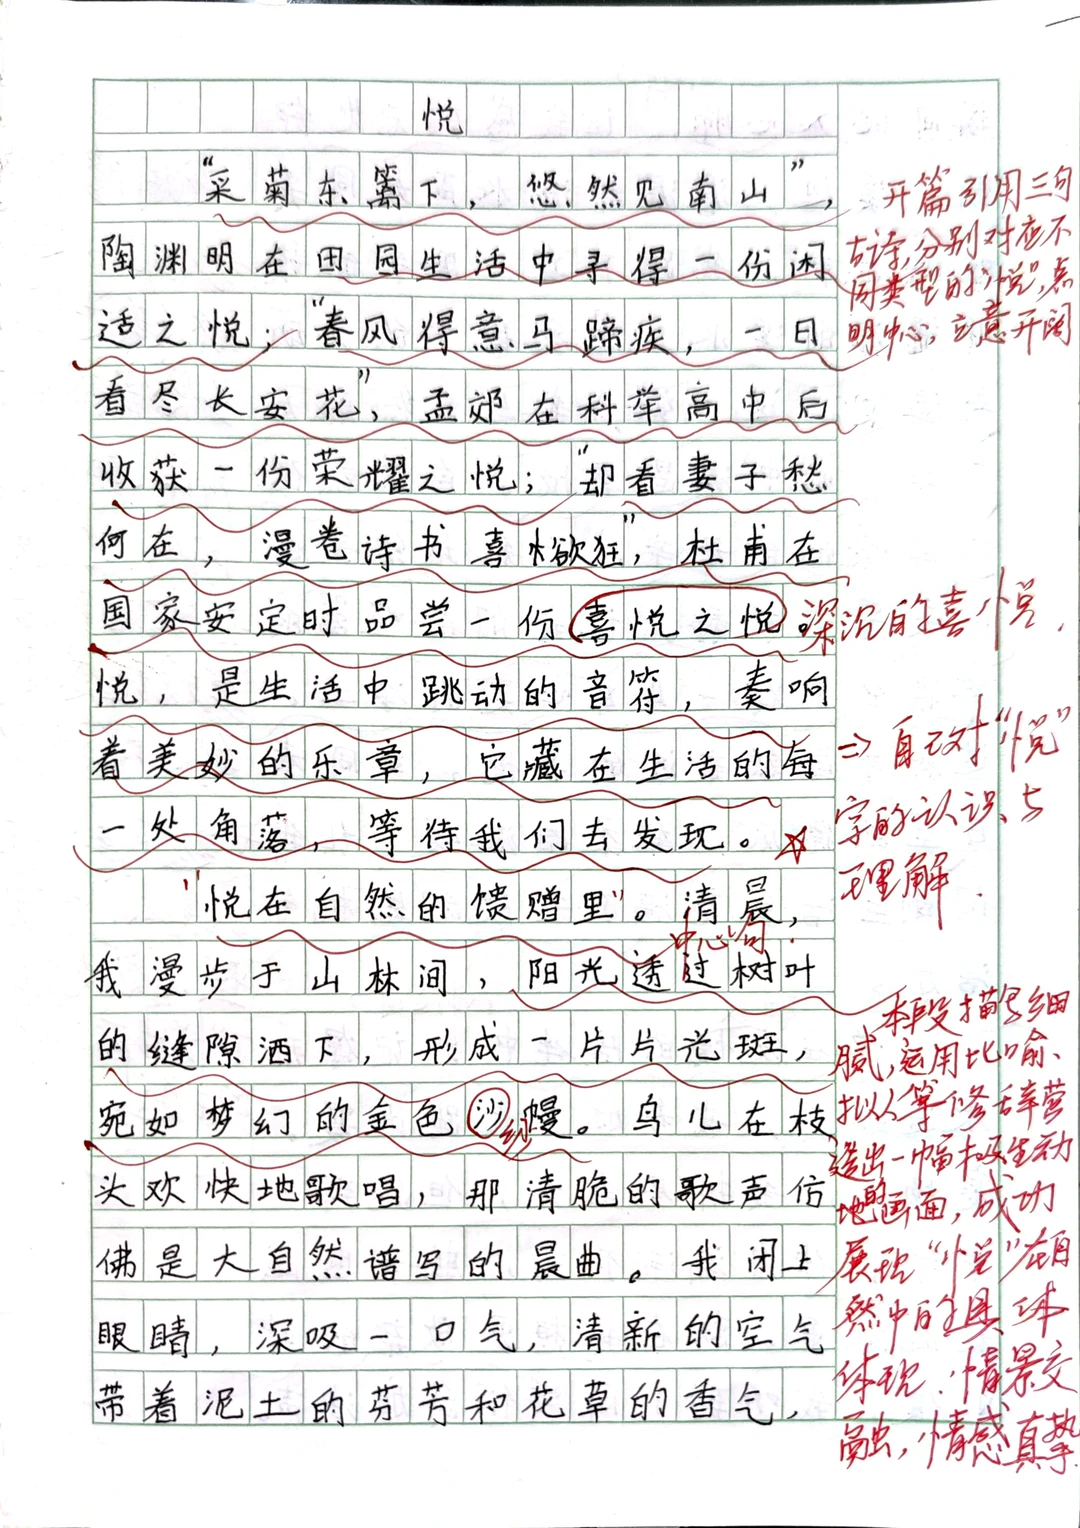 悦
“采菊东篱下，悠然见南山”，
陶渊明在田园生活中寻得一份闲
适之悦；“春风得意马蹄疾，一日
看尽长安花”，孟郊在科举高中后
收获一份荣耀之悦；“却看妻子愁
何在，漫卷诗书喜欲狂”，杜甫在
国家安定时品尝一份喜悦之悦。
悦，是生活中跳动的音符，奏响
着美妙的乐章，它藏在生活的每
一处角落，等待我们去发现。
“悦在自然的馈赠里”。清晨，
我漫步于山林间，阳光透过树叶
的缝隙洒下，形成一片片光斑，
宛如梦幻的金色沙幔。鸟儿在枝
头欢快地歌唱，那清脆的歌声仿
佛是大自然谱写的晨曲。我闭上
眼睛，深吸一口气，清新的空气
带着泥土的芬芳和花草的香气，
开篇引用三句
古诗，分别对应不
同类型的“悦”，点
明中心，立意开阔
深沉的喜悦．
⇒自己对“悦”
字的认识与
理解．
中心句．
纱
本段描写细
腻，运用比喻、
拟人等修辞营
造出一幅极生动
地的画面，成功
展现“悦”在自
然中的具体
体现．情景交
融，情感真挚